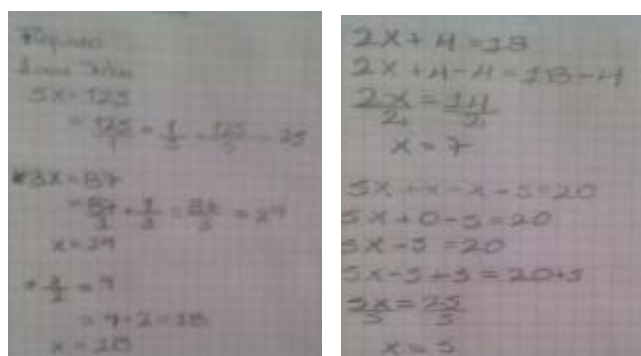 5x=125
= 125/1 * 1/5 = 125/5 = 25
*3x=87
= 87/1 * 1/3 = 87/3 = 29
x=29
* x/2 = 9
= 9*2=18
x=18
2x+4=18
2x+4-4=18-4
2x/2=14/2
x=7
5x+x-x-5=20
5x+0-5=20
5x-5=20
5x-5+5=20+5
5x/5=25/5
x=5